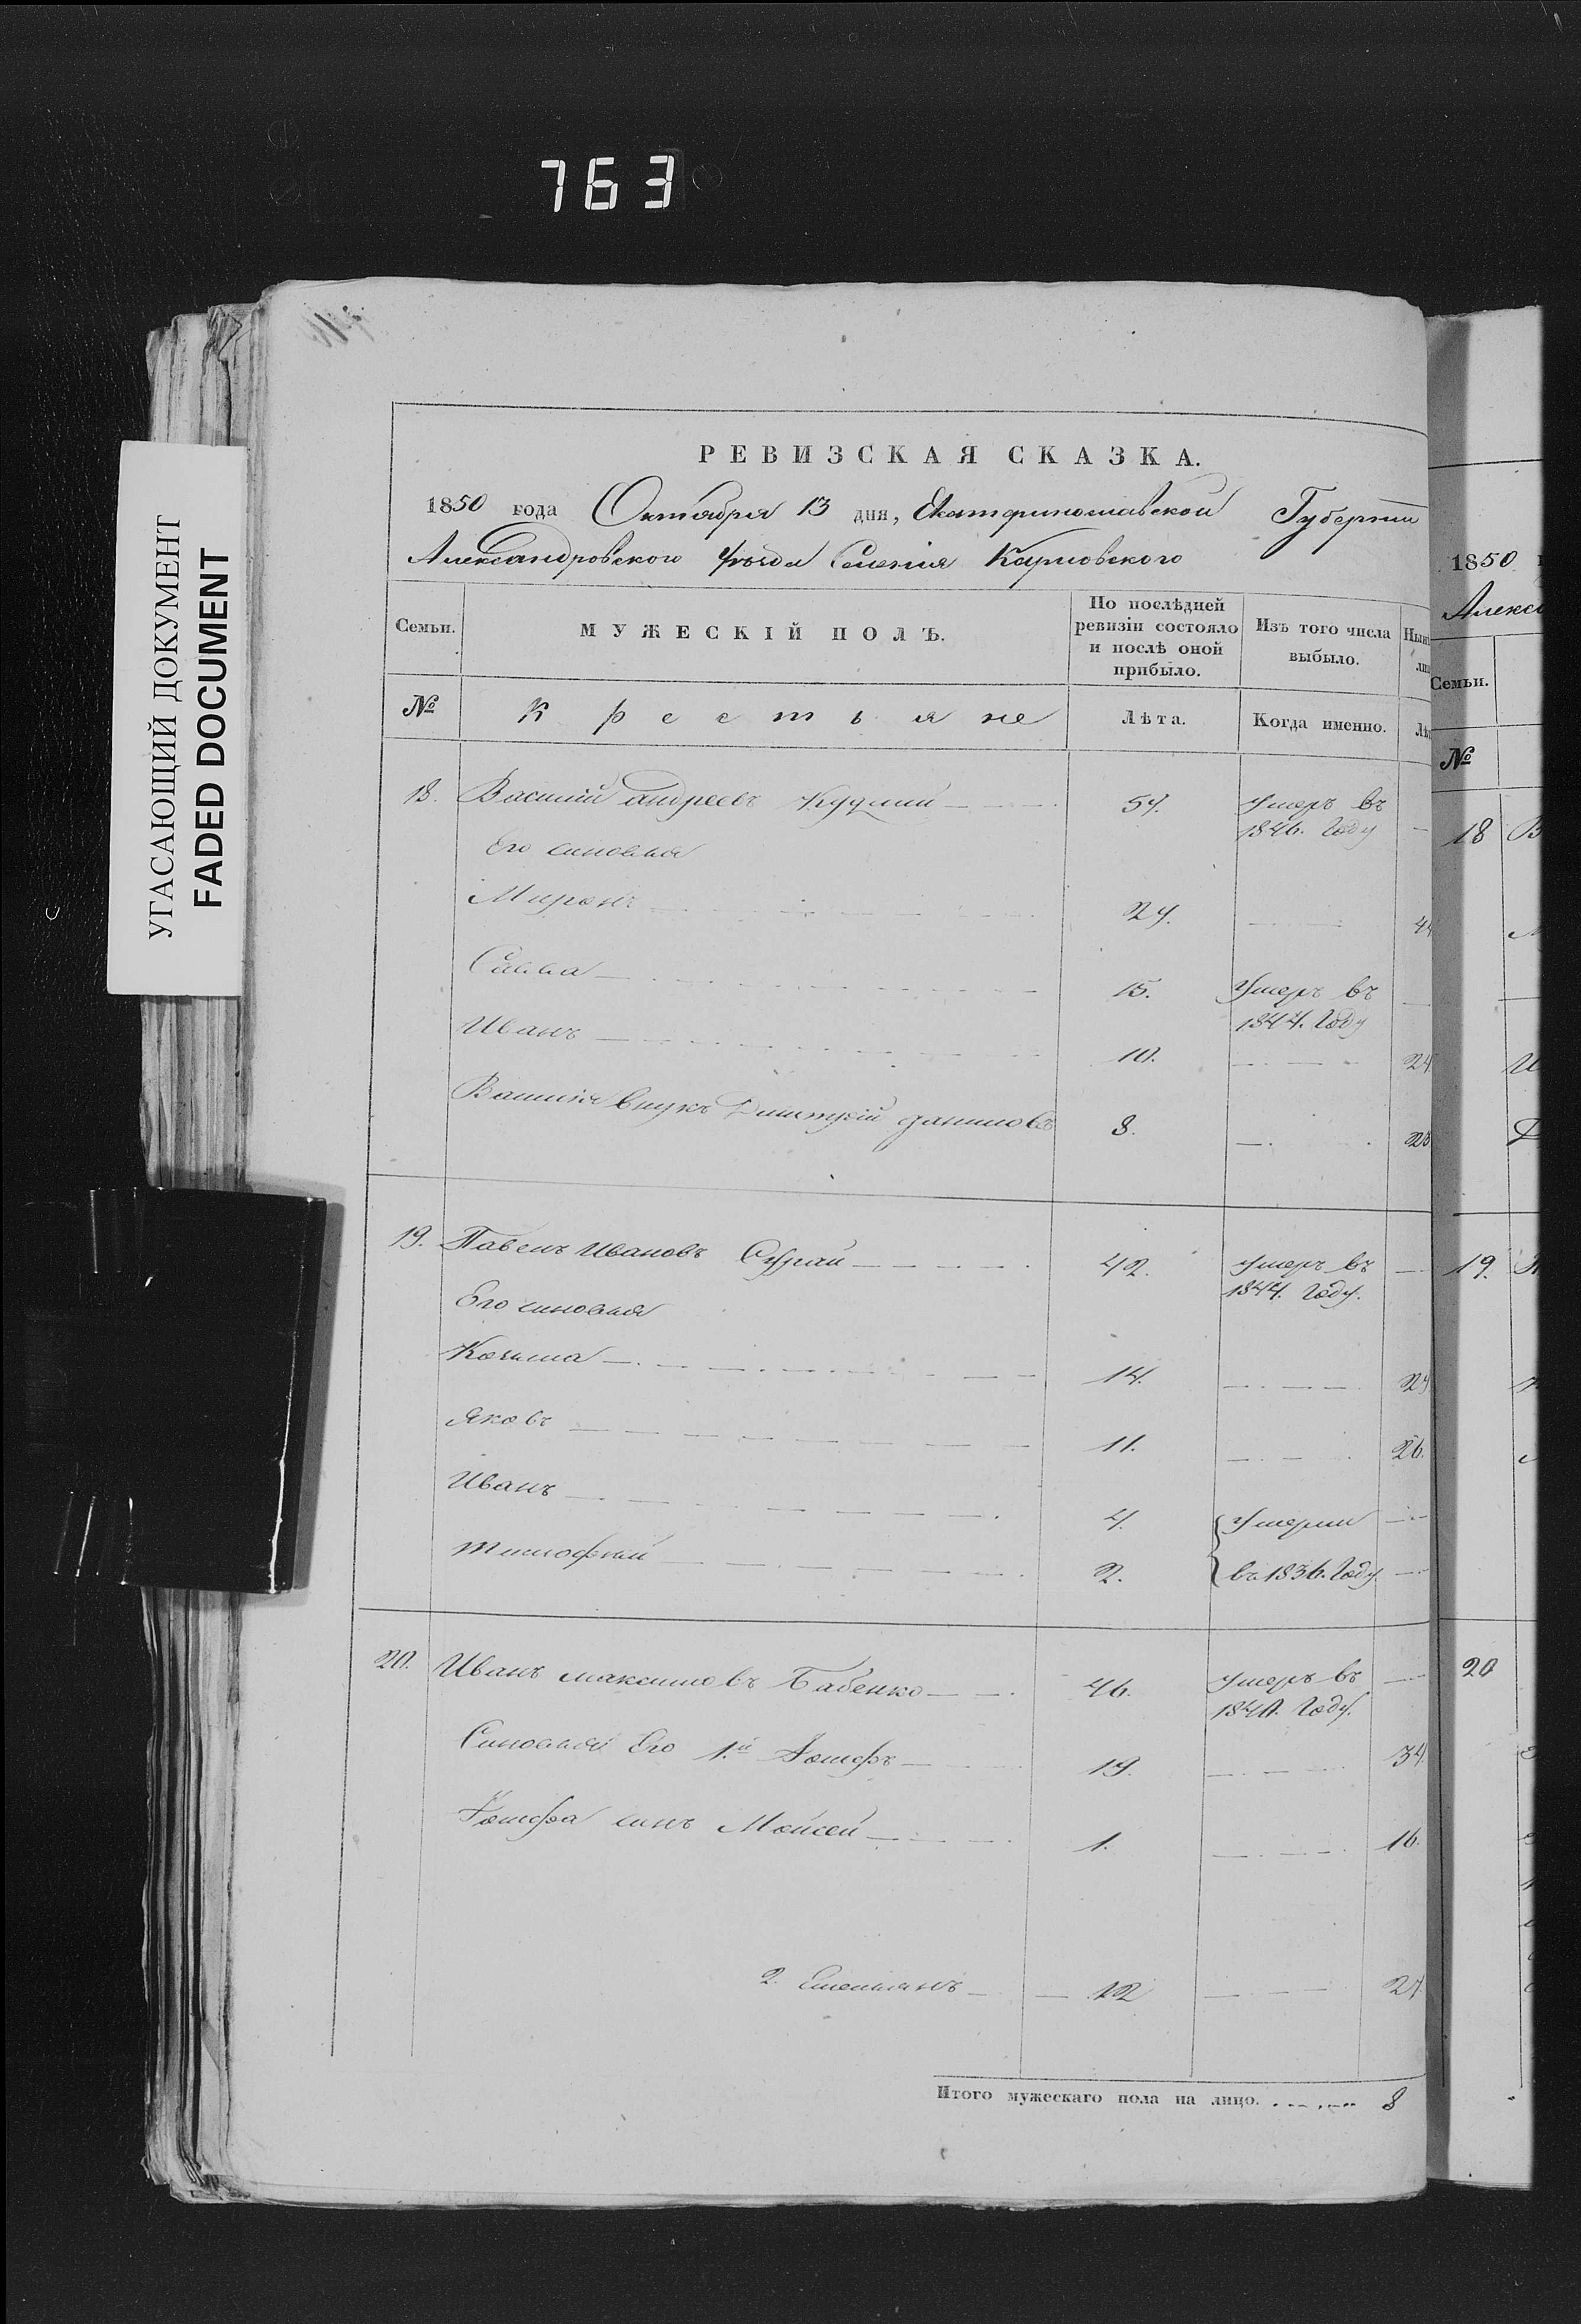 763
УГАСАЮЩИЙ ДОКУМЕНТ
FADED DOCUMENT
РЕВИЗСКАЯ СКАЗКА.
1850 года Октября 13 дня, Екатеринославской Губернии
Александровского уѣзда Селенія Карловского
Семьи. МУЖЕСКІЙ ПОЛЪ. По послѣдней ревизіи состояло и послѣ оной прибыло. Изъ того числа выбыло.
№ Крестьяне Лѣта. Когда именно.
18. Василій андреевъ 57. Умеръ въ
1846. Году
Его синовья
Миронъ 29.
Савва 15. Умеръ въ
1844. Году
Иванъ 10. 25
Василія внукъ Дмитрій даниловъ 8. 23
19. Павелъ Ивановъ Сурай 42. умеръ въ
1844. Году.
Его синовья
Козьма 14. 29
Яковъ 11. 26.
Иванъ 4. Умерли
тимофеий 2. въ 1836. Году
20. Иванъ максимовъ Бабенко 46. умеръ въ
1840. Году.
Синовья Его 1.й Іосифъ 19. 34.
Іосифа синъ Моисей 1. 16.
2. Емельянъ 12 27
Итого мужескаго пола на лицо. 8
1850
Алекса
Семьи.
№
18 В
19.
20